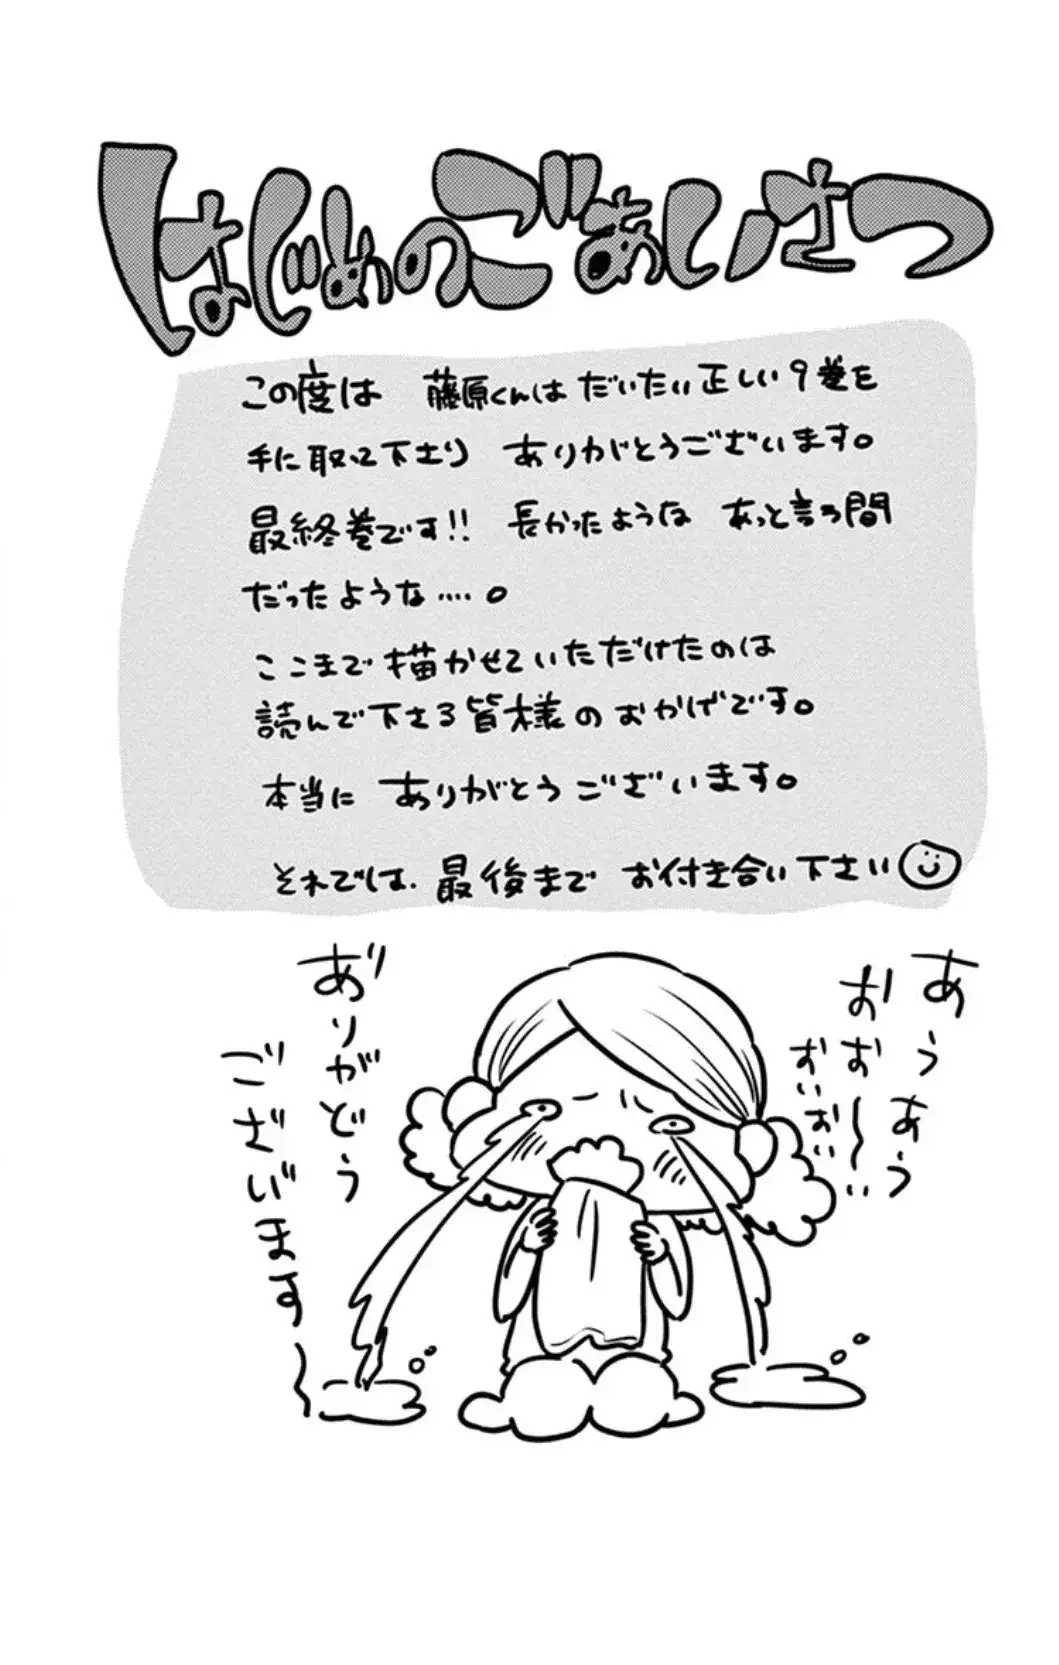 はじめのごあいさつ
この度は 藤原くんはだいたい正しい9巻を
手に取って下さり ありがとうございます。
最終巻です!! 長かったような あっと言う間
だったような‥‥。
ここまで描かせていただけたのは
読んで下さる皆様のおかげです。
本当に ありがとうございます。
それでは、最後まで お付き合い下さい
あうあう
おお〜い‥
おいおい
ありがどう
ございます〜